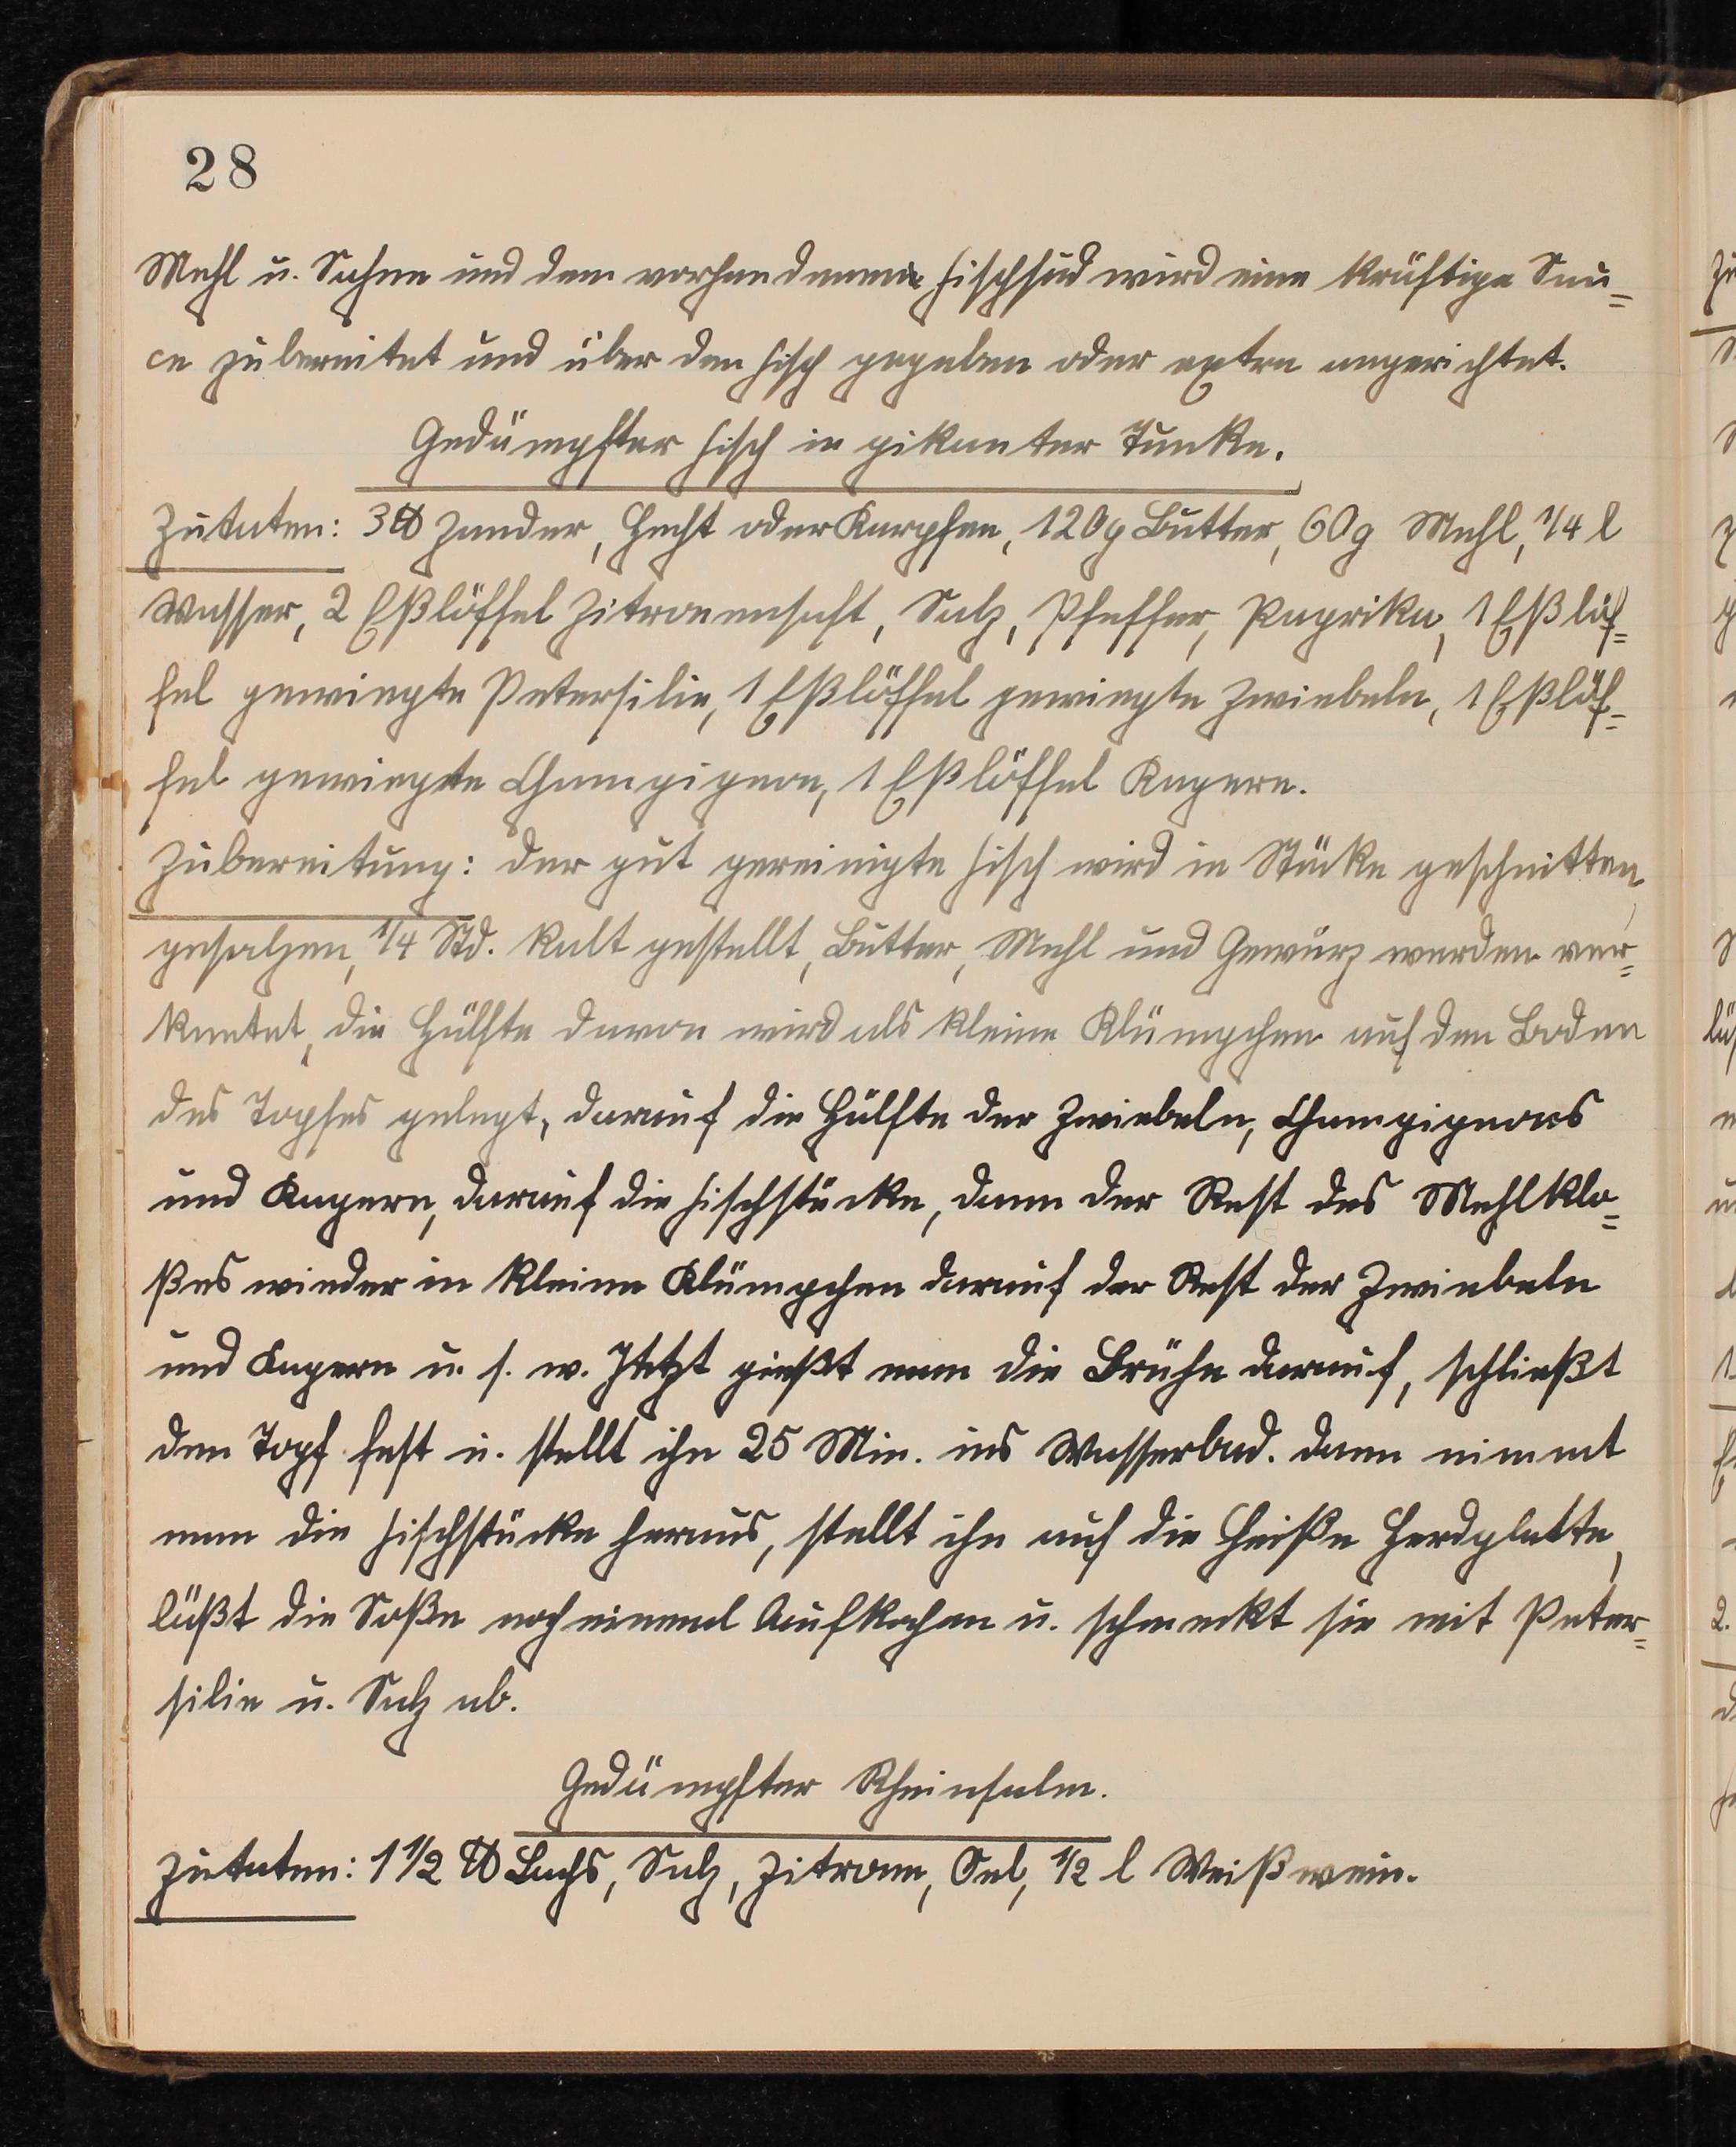 28
Mehl u. Sahne und dem vorhandenen Fischsud wird eine kräftige Sau=
ce zubereitet und über den Fisch gegeben oder extra angerichtet.
Gedämpfter Fisch in pikanter Tunke.
Zutaten: 3 ℔ Zander, Hecht oder Karpfen, 120g Butter, 60g Mehl, 1/4 l
Wasser, 2 Eßlöffel Zitronensaft, Salz, Pfeffer, Paprika, 1 Eßlöf=
fel gewiegte Petersilie, 1 Eßlöffel gewiegte Zwiebeln, 1 Eßlöf=
fel gewiegte Champignon, 1 Eßlöffel Kapern.
Zubereitung: der gut gereinigte Fisch wird in Stücke geschnitten,
gesalzen, 1/4 Std. kalt gestellt, Butter, Mehl und Gewürz werden ver=
knetet, die Hälfte davon wird als kleine Klümpchen auf den Boden
des Topfes gelegt, darauf die Hälfte der Zwiebeln, Champignons
und Kapern, darauf die Fischstücke, dann der Rest des Mehlklo=
ßes wieder in kleine Klümpchen darauf der Rest der Zwiebeln
und Kapern u. s. w. Jetzt gießt man die Brühe darauf, schließt
den Topf fest u. stellt ihn 25 Min. ins Wasserbad. dann nimmt
man die Fischstücke heraus, stellt ihn auf die heiße Herdplatte,
läßt die Soße noch einmal Aufkochen u. schmeckt sie mit Peter=
silie u. Salz ab.
Gedämpfter Rheinsalm.
Zutaten: 1 1/2 ℔ Lachs, Salz, Zitrone, Oel, 1/2 l Weißwein.